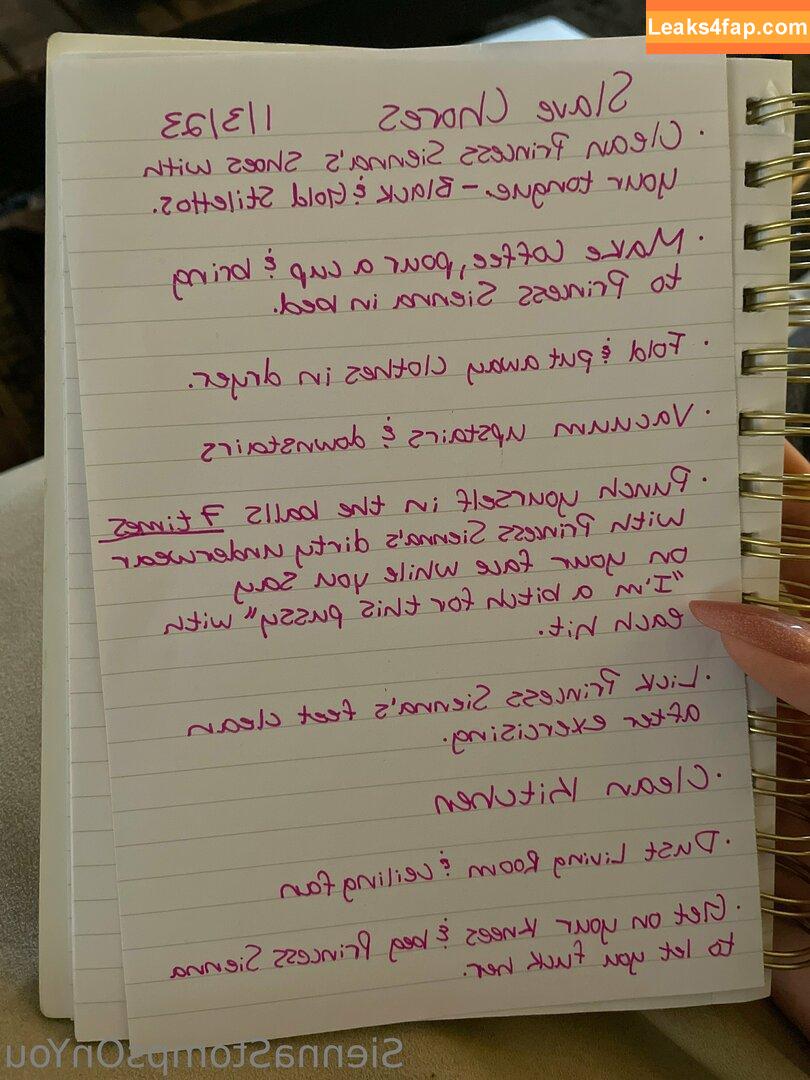 Leaks4fap.com
Slave Chores 1/3/23
· Clean Princess Sienna's Shoes with
your tongue. - Black & Gold Stilettos.
· Make coffee, pour a cup & bring
to Princess Sienna in bed.
· Fold & put away clothes in dryer.
· Vacuum upstairs & downstairs
· Punch yourself in the balls 7 times
with Princess Sienna's dirty underwear
on your face while you say
"I'm a bitch for this pussy" with
each hit.
· Lick Princess Sienna's feet clean
after exercising.
· Clean Kitchen
· Dust Living Room & ceiling fan
· Get on your knees & beg Princess Sienna
to let you fuck her.
SiennaStompsOnYou